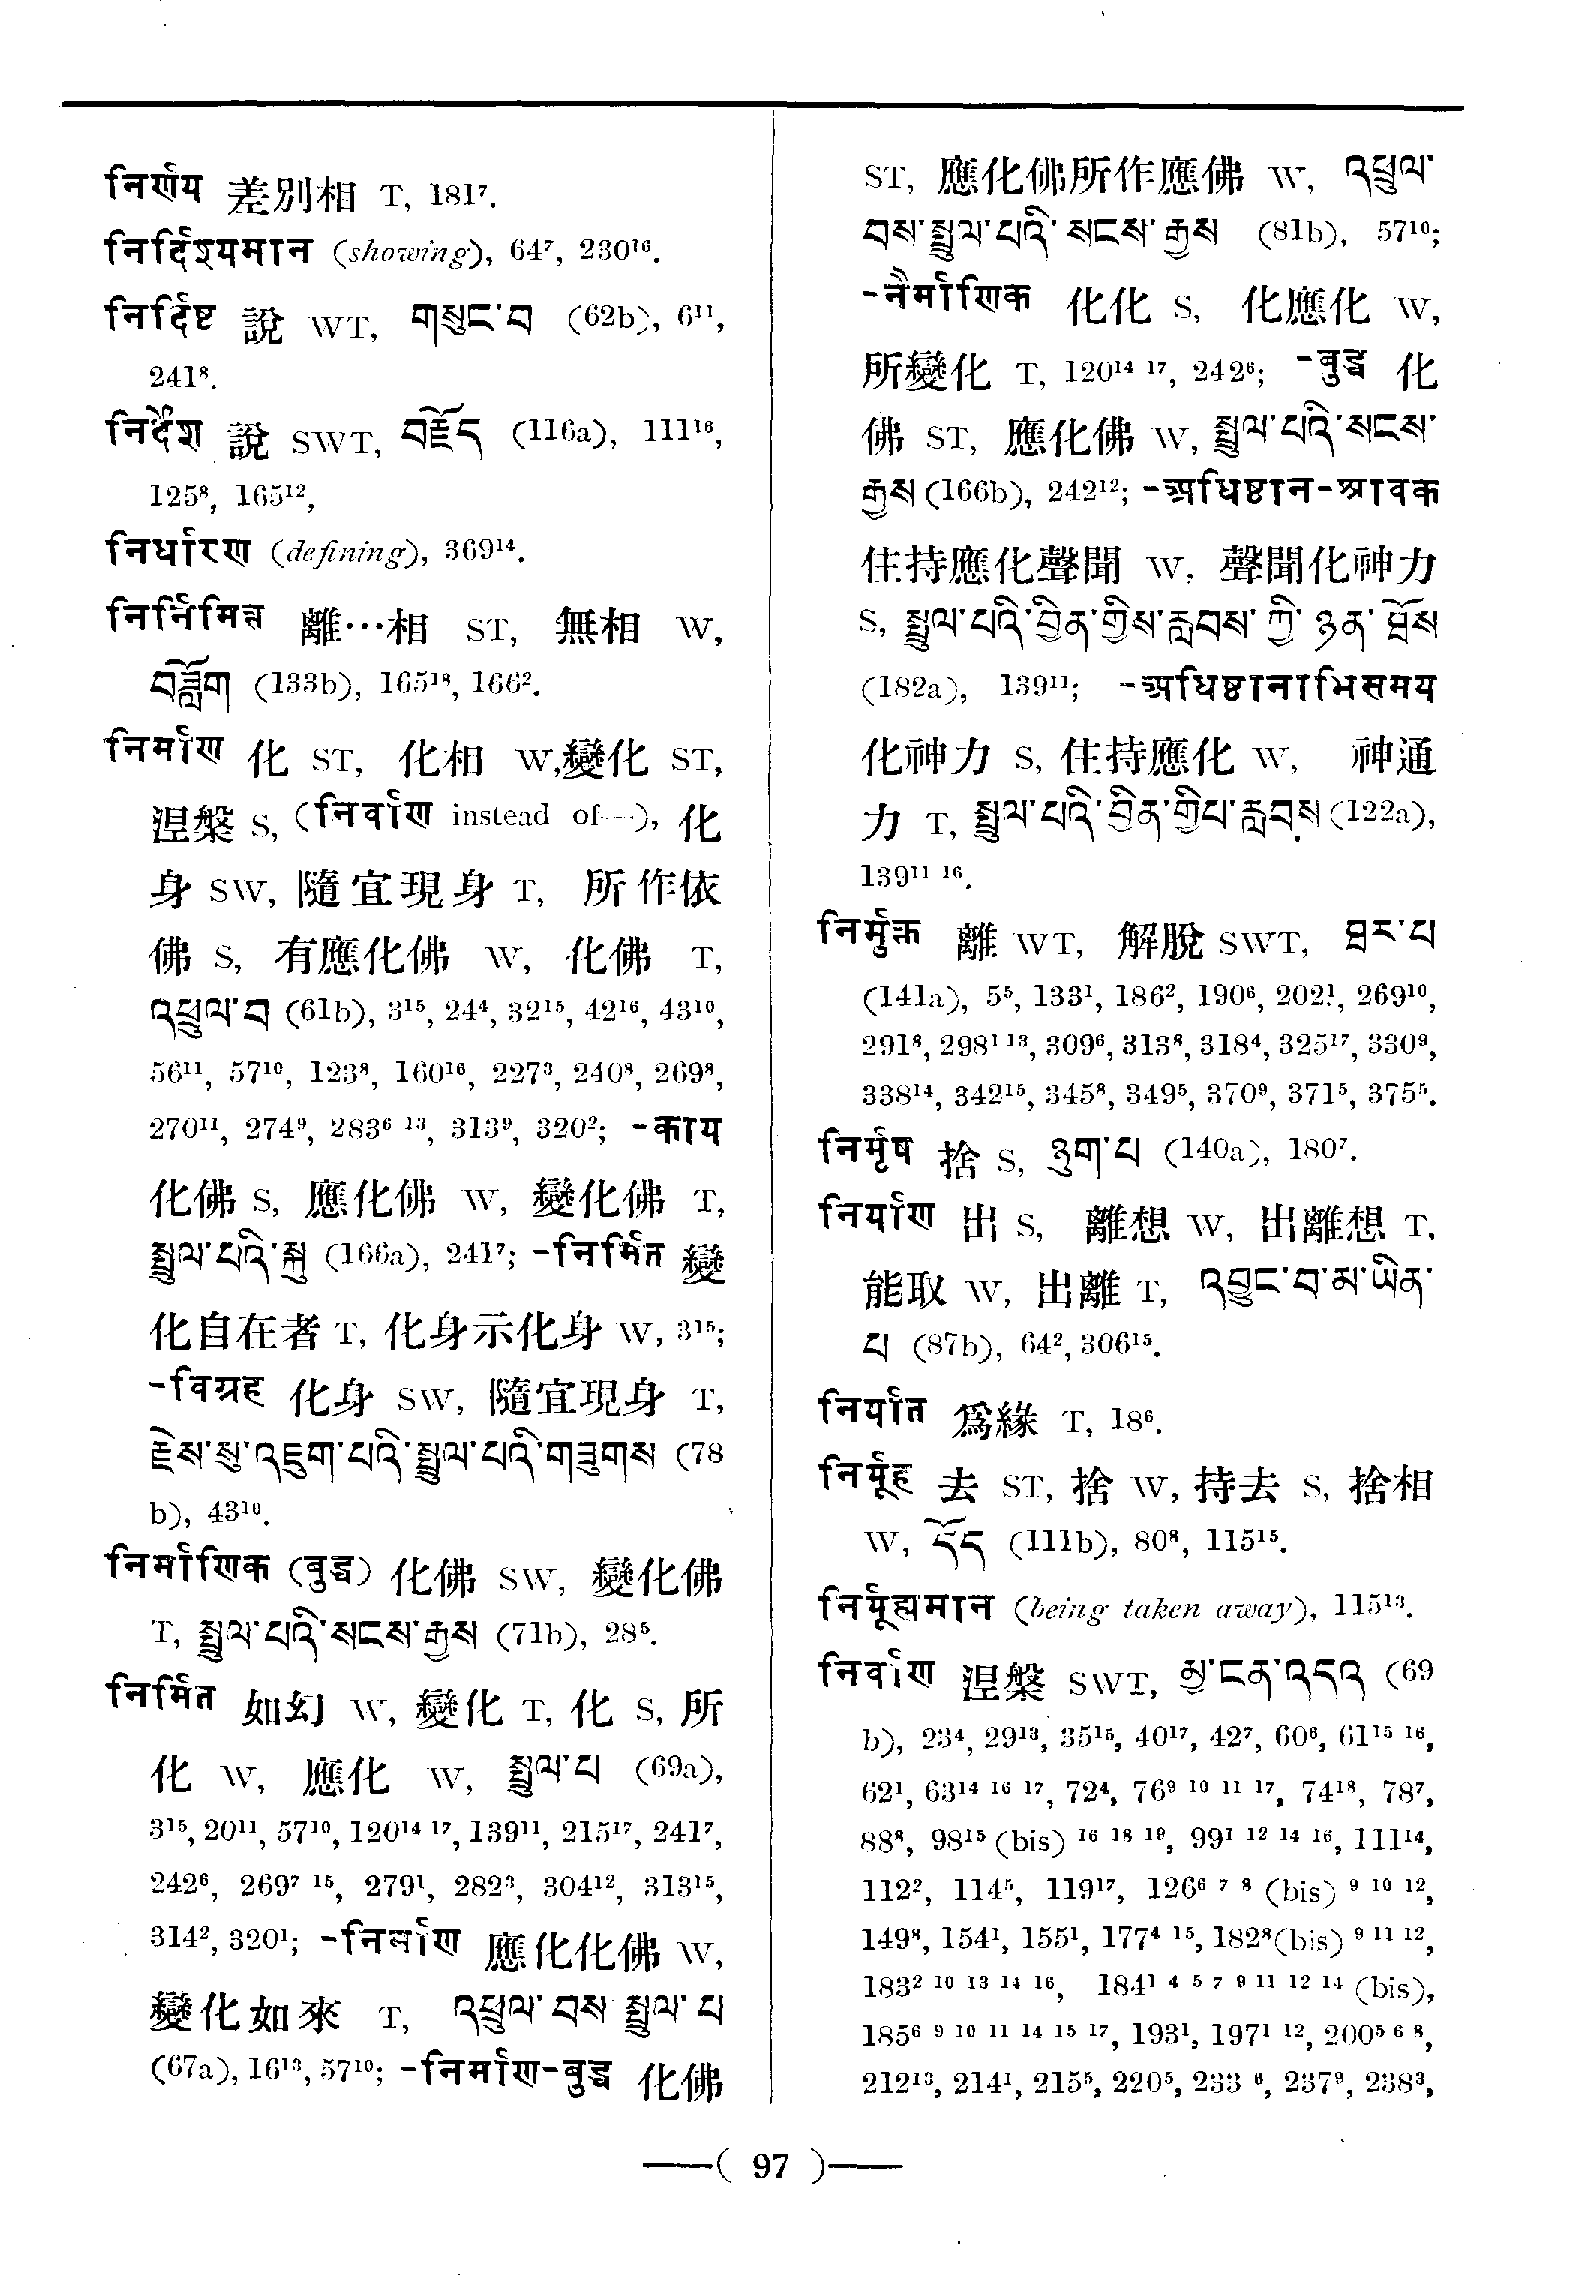 निर्णय 差別相 T, 181⁷.
निर्दिश्यमान (showing), 64⁷, 230¹⁶.
निर्दिष्ट 說 WT, གསུང་བ (62b), 6¹¹,
241⁸.
निर्देश 說 SWT, བརྗོད (116a), 111¹⁶,
125⁸, 165¹²,
निर्धारण (defining), 369¹⁴.
निर्निमित्त 離…相 ST, 無相 W,
བཟློག (133b), 165¹⁸, 166².
निर्माण 化 ST, 化相 W,變化 ST,
涅槃 S, (निर्वाण instead of—), 化
身 SW, 隨宜現身 T, 所作依
佛 S, 有應化佛 W, 化佛 T,
འཕྲུལ་བ (61b), 3¹⁵, 24⁴, 32¹⁵, 42¹⁶, 43¹⁰,
56¹¹, 57¹⁰, 123⁸, 160¹⁶, 227³, 240⁸, 269⁸,
270¹¹, 274⁹, 283⁶ ¹³, 313⁹, 320²; -काय
化佛 S, 應化佛 W, 變化佛 T,
སྤྲུལ་པའི་སྐུ (166a), 241⁷; -निर्मित 變
化自在者 T, 化身示化身 W, 3¹⁵;
-विग्रह 化身 SW, 隨宜現身 T,
རྗེས་སུ་འཇུག་པའི་སྤྲུལ་པའི་གཟུགས (78
b), 43¹⁰.
निर्माणिक (बुद्ध) 化佛 SW, 變化佛
T, སྤྲུལ་པའི་སངས་རྒྱས (71b), 28⁵.
निर्मित 如幻 W, 變化 T, 化 S, 所
化 W, 應化 W, སྤྲུལ་པ (69a),
3¹⁵, 20¹¹, 57¹⁰, 120¹⁴ ¹⁷, 139¹¹, 215¹⁷, 241⁷,
242⁶, 269⁷ ¹⁵, 279¹, 282³, 304¹², 313¹⁵,
314², 320¹; -निर्माण 應化化佛 W,
變化如來 T, འཕྲུལ་བས་སྤྲུལ་པ
(67a), 16¹³, 57¹⁰; -निर्माण-बुद्ध 化佛
ST, 應化佛所作應佛 W, འཕྲུལ་
བས་སྤྲུལ་པའི་སངས་རྒྱས (81b), 57¹⁰;
-नैर्माणिक 化化 S, 化應化 W,
所變化 T, 120¹⁴ ¹⁷, 242⁶; -बुद्ध 化
佛 ST, 應化佛 W, སྤྲུལ་པའི་སངས་
རྒྱས (166b), 242¹²; -अधिष्ठान-श्रावक
住持應化聲聞 W, 聲聞化神力
S, སྤྲུལ་པའི་བྱིན་གྱིས་རླབས་ཀྱི་ཉན་ཐོས
(182a), 139¹¹; -अधिष्ठानाभिसमय
化神力 S, 住持應化 W, 神通
力 T, སྤྲུལ་པའི་བྱིན་གྱིཔ་རླབས (122a),
139¹¹ ¹⁶.
निर्मुक्त 離 WT, 解脫 SWT, ཐར་པ
(141a), 5⁵, 133¹, 186², 190⁶, 202¹, 269¹⁰,
291⁸, 298¹ ¹³, 309⁶, 313⁸, 318⁴, 325¹⁷, 330⁹,
338¹⁴, 342¹⁵, 345⁸, 349⁵, 370⁹, 371⁵, 375⁵.
निर्मृष 捨 S, ཉུག་པ (140a), 180⁷.
निर्याण 出 S, 離想 W, 出離想 T,
能取 W, 出離 T, འབྱུང་བ་མ་ཡིན་
པ (87b), 64², 306¹⁵.
निर्यात 爲緣 T, 18⁶.
निर्यूह 去 ST, 捨 W, 持去 S, 捨相
W, དོད (111b), 80⁸, 115¹⁵.
निर्यूह्यमान (being taken away), 115¹³.
निर्वाण 涅槃 SWT, མྱ་ངན་འདའ (69
b), 23⁴, 29¹³, 35¹⁵, 40¹⁷, 42⁷, 60⁶, 61¹⁵ ¹⁶,
62¹, 63¹⁴ ¹⁶ ¹⁷, 72⁴, 76⁹ ¹⁰ ¹¹ ¹⁷, 74¹⁸, 78⁷,
88⁸, 98¹⁵ (bis) ¹⁶ ¹⁸ ¹⁹, 99¹ ¹² ¹⁴ ¹⁶, 111¹⁴,
112², 114⁵, 119¹⁷, 126⁶ ⁷ ⁸ (bis) ⁹ ¹⁰ ¹²,
149⁸, 154¹, 155¹, 177⁴ ¹⁵, 182⁸(bis) ⁹ ¹¹ ¹²,
183² ¹⁰ ¹³ ¹⁴ ¹⁶, 184¹ ⁴ ⁵ ⁷ ⁹ ¹¹ ¹² ¹⁴ (bis),
185⁶ ⁹ ¹⁰ ¹¹ ¹⁴ ¹⁵ ¹⁷, 193¹, 197¹ ¹², 200⁵ ⁶ ⁸,
212¹³, 214¹, 215⁵, 220⁵, 233 ⁶, 237⁹, 238³,
—( 97 )—